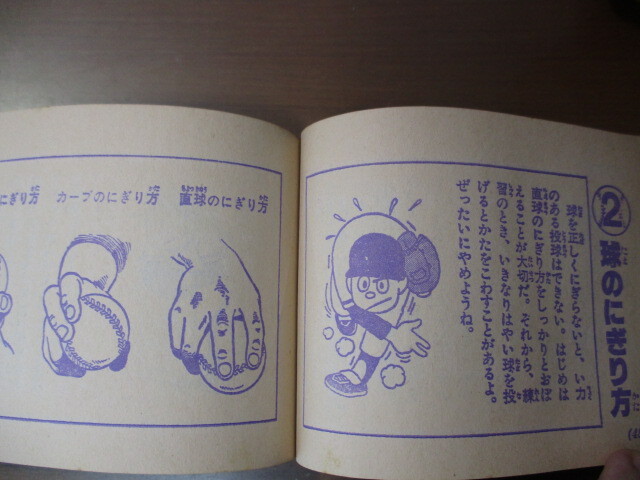 ② 球のにぎり方
球を正しくにぎらないと、い力
のある投球はできない。はじめは
直球のにぎり方をしっかりとおぼ
えることが大切だ。それから、練
習のとき、いきなりはやい球を投
げるとかたをこわすことがあるよ。
ぜったいにやめようね。
直球のにぎり方
カーブのにぎり方
にぎり方